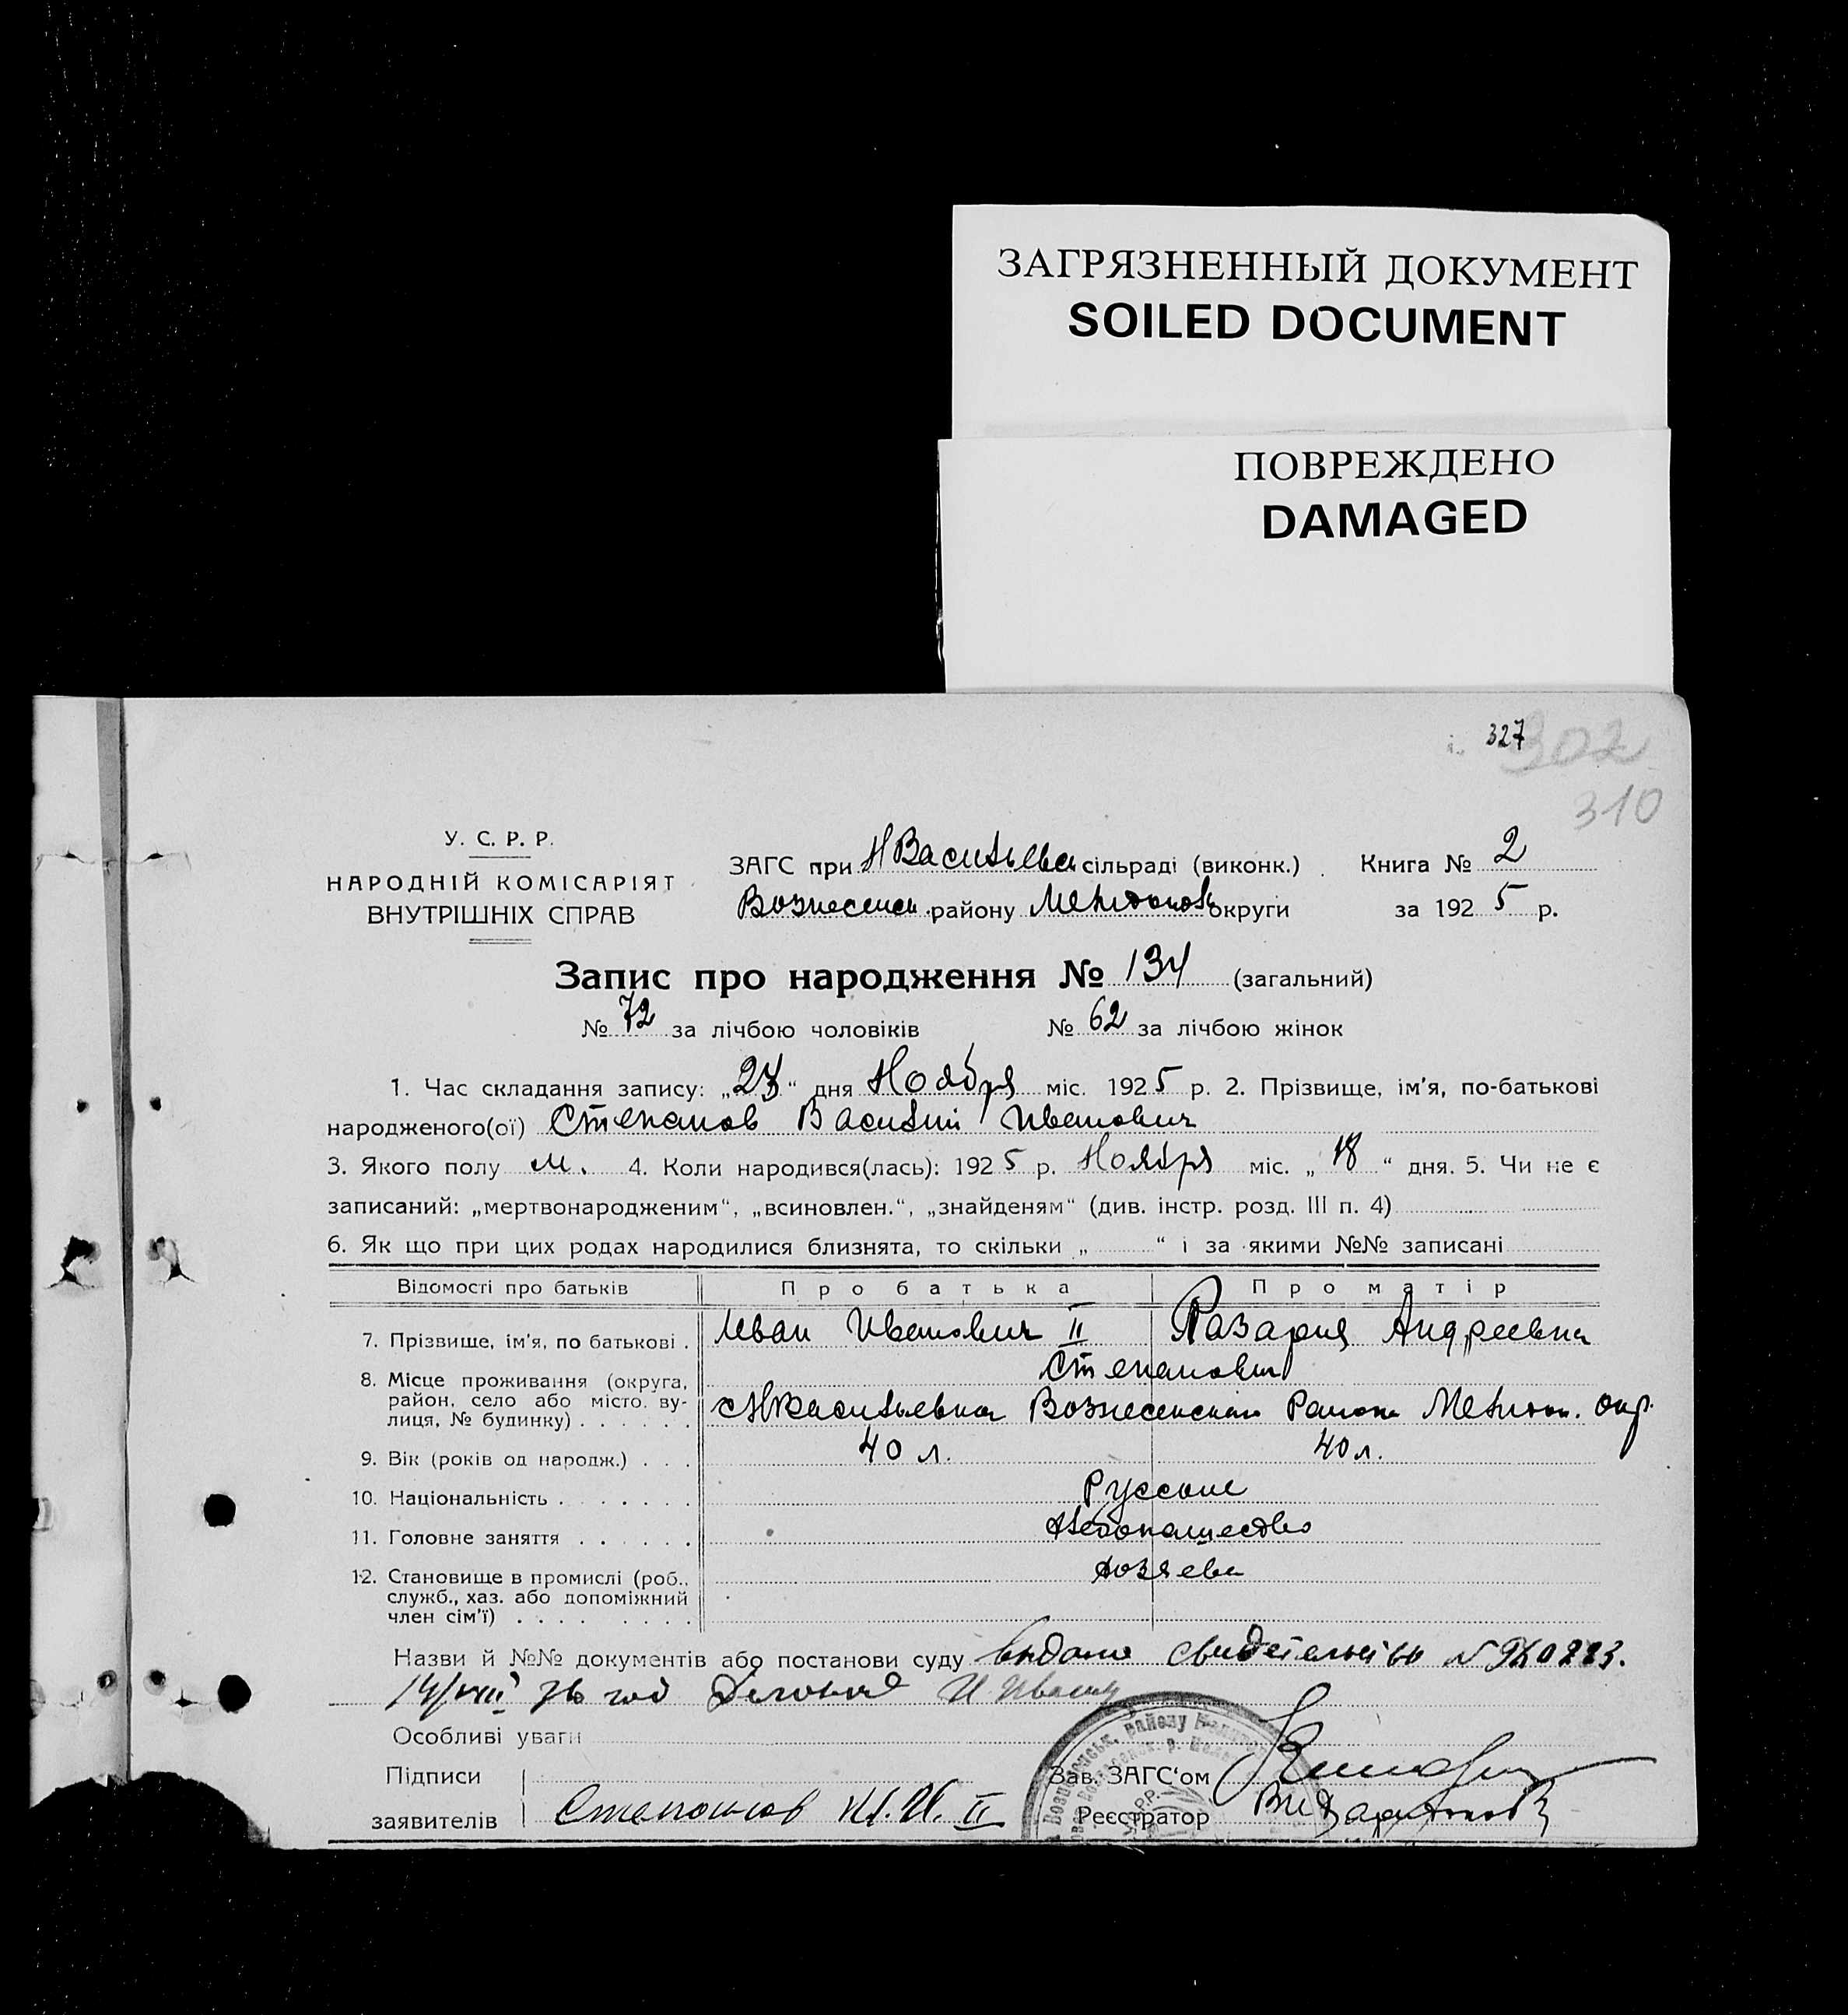 ЗАГРЯЗНЕННЫЙ ДОКУМЕНТ
SOILED DOCUMENT
ПОВРЕЖДЕНО
DAMAGED
327
302
310
У. С. Р. Р.
НАРОДНІЙ КОМІСАРІЯТ
ВНУТРІШНІХ СПРАВ
ЗАГС при НВасильевск сільраді (виконк.) Книга № 2
Вознесенск району Мелитополь округи за 1925 р.
Запис про народження № 134 (загальний)
№ 72 за лічбою чоловіків № 62 за лічбою жінок
1. Час складання запису: „27“ дня Ноября міс. 1925 р. 2. Прізвище, ім'я, по-батькові
народженого(ої) Степанов Василий Иванович
3. Якого полу м. 4. Коли народився(лась): 1925 р. Ноября міс. „18“ дня. 5. Чи не є
записаний: „мертвонародженим“, „всиновлен.“, „знайденям“ (див. інстр. розд. III п. 4)
6. Як що при цих родах народилися близнята, то скільки „ “ і за якими №№ записані
Відомості про батьків Про батька Про матір
7. Прізвище, ім'я, по батькові . Иван Иванович II Андреевна
8. Місце проживання (округа, район, село або місто, вулиця, № будинку) НВасильевка Вознесенского Района Мелитоп. окр.
9. Вік (років од народж.) . . . 40 л. 40 л.
10. Національність . . . . . . . Русские
11. Головне заняття . . . . . . Хлебопашество
12. Становище в промислі (роб., Хозяева
служб., хаз. або допоміжний
член сім'ї) . . . . . . . .
Назви й №№ документів або постанови суду выдано свидетельство №
14/VIII 76 год
Особливі уваги
Підписи
заявителів Степанов И. И. II
Зав. ЗАГС'ом
Реєстратор